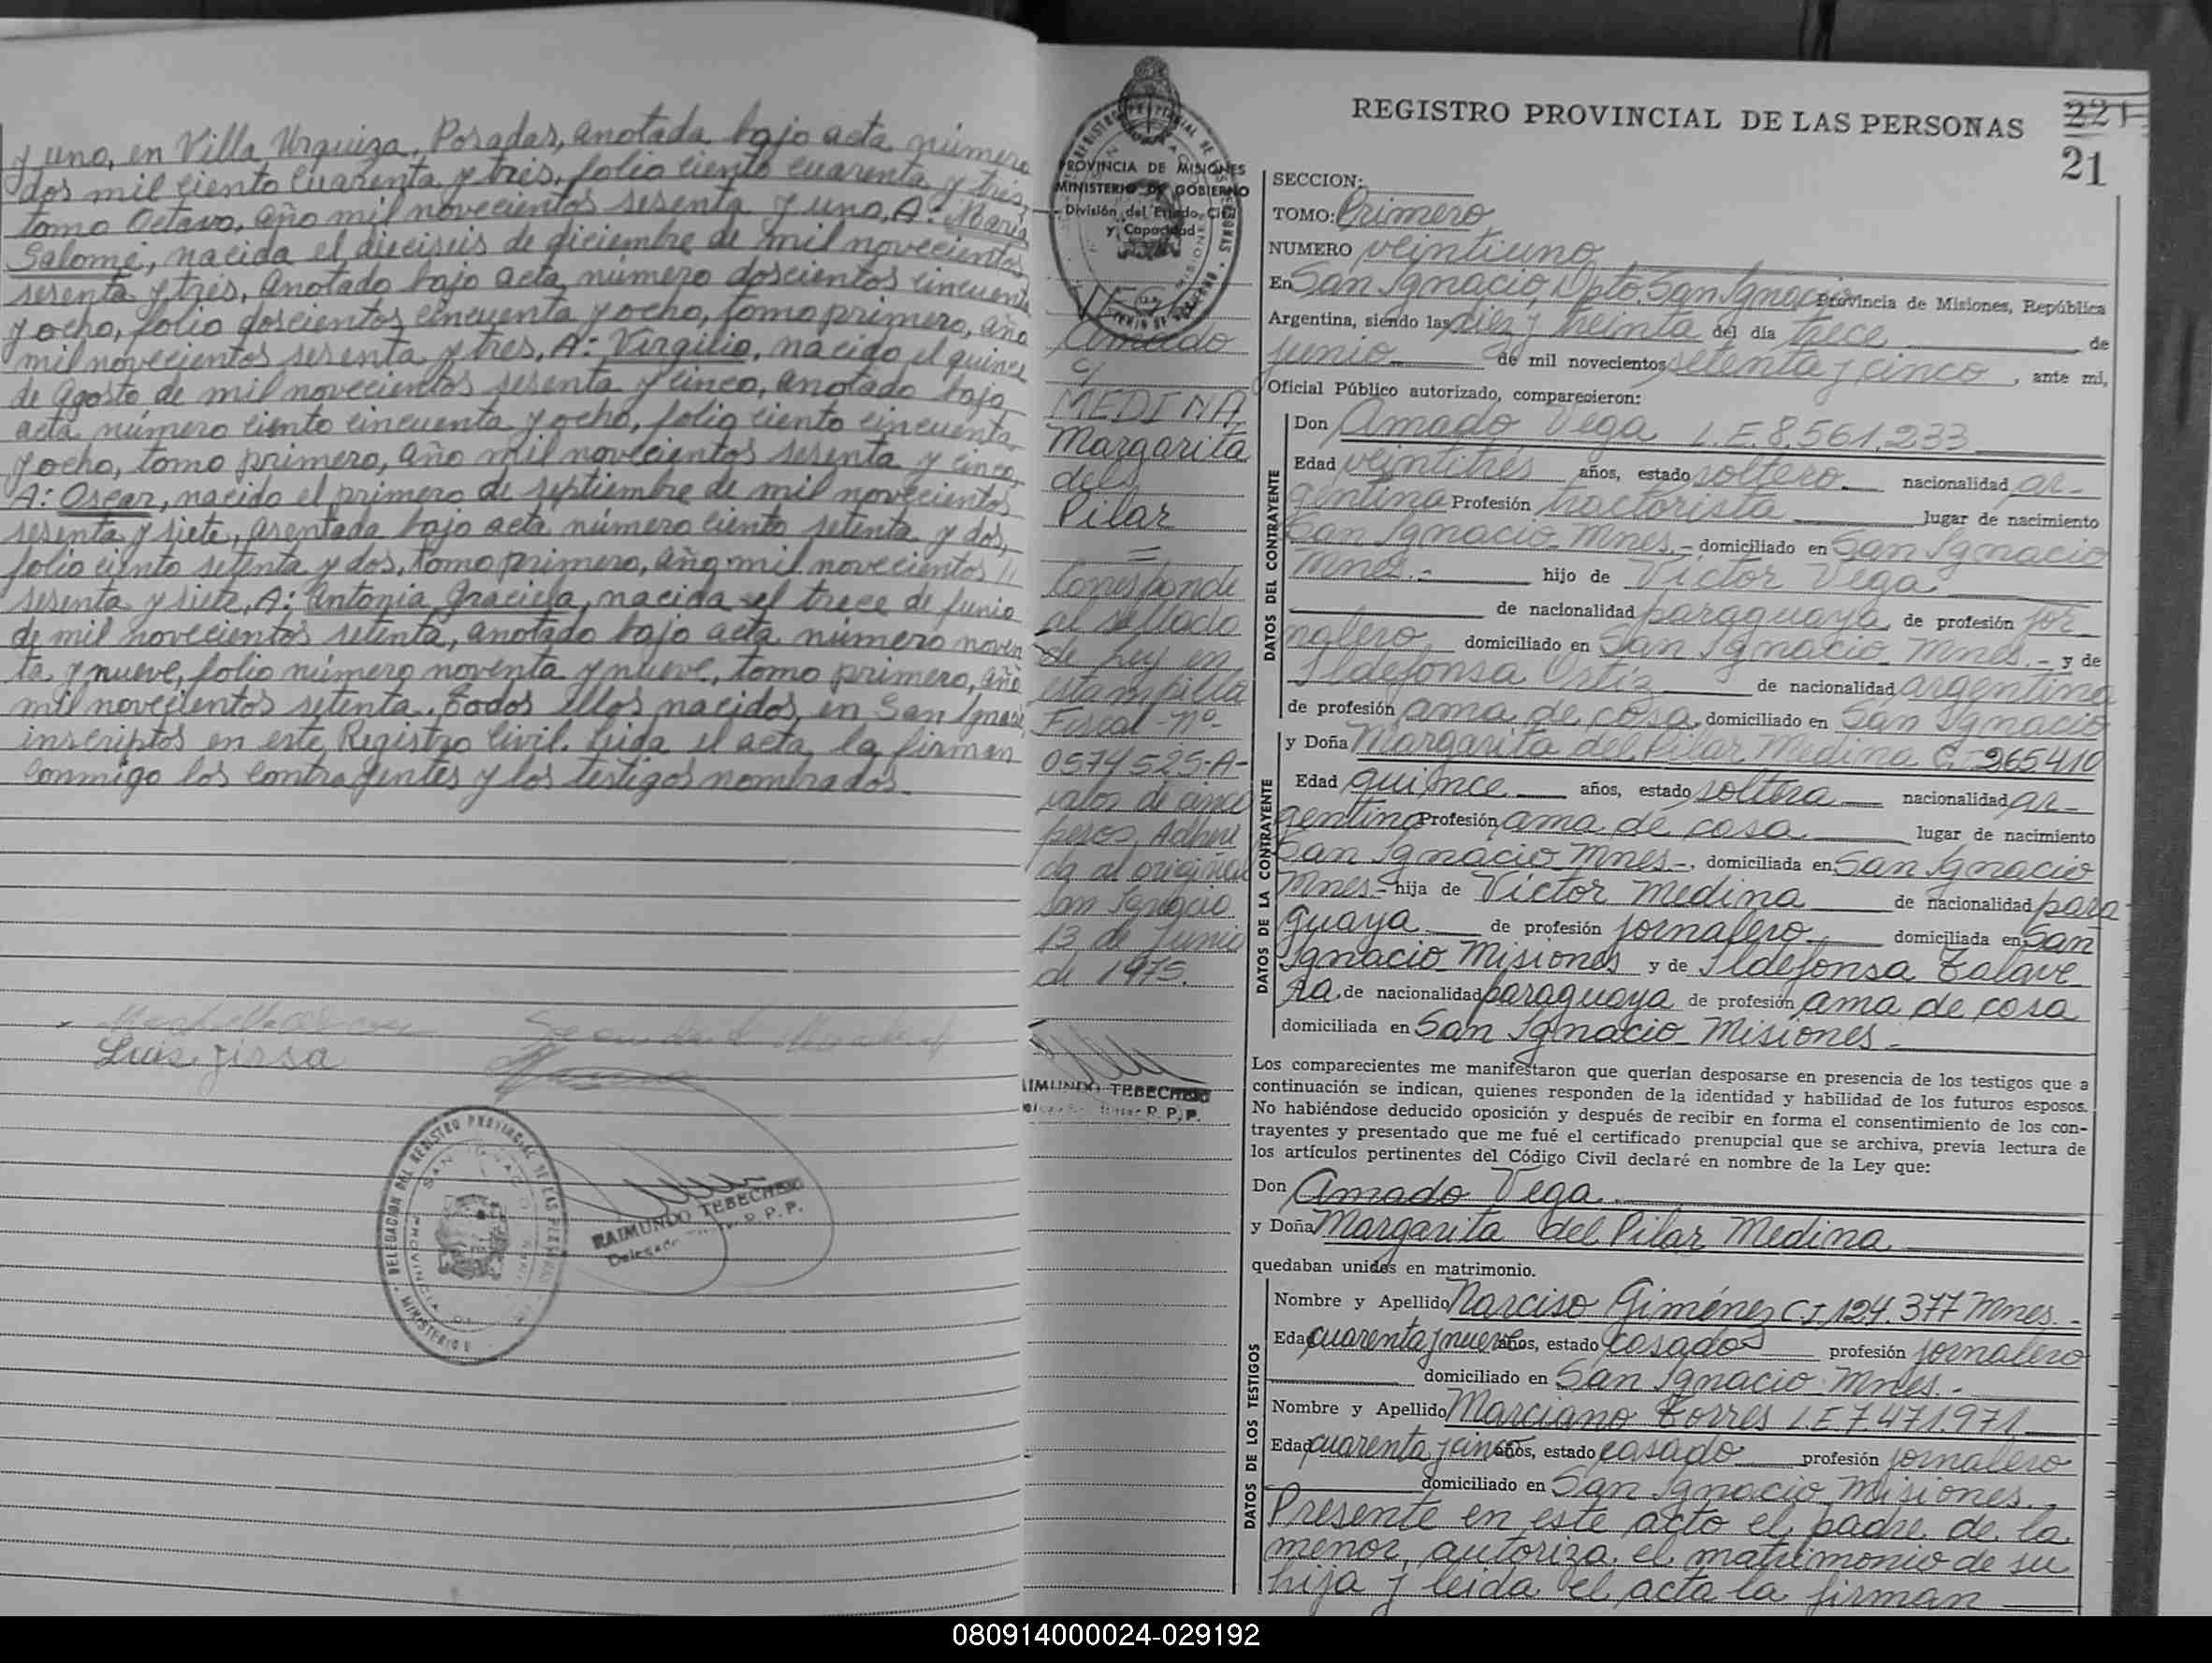 y uno, en Villa Urquiza, Posadas, anotada bajo acta número
dos mil ciento cuarenta y tres, folio ciento cuarenta y tres,
tomo Octavo, año mil novecientos sesenta y uno, A: María
Salomé, nacida el dieciseis de diciembre de mil novecientos
sesenta y tres, anotado bajo acta número doscientos cincuenta
y ocho, folio doscientos cincuenta y ocho, tomo primero, año
mil novecientos sesenta y tres, A: Virgilio, nacido el quince
de Agosto de mil novecientos sesenta y cinco, anotado bajo
acta número ciento cincuenta y ocho, folio ciento cincuenta
y ocho, tomo primero, año mil novecientos sesenta y cinco,
A: Oscar, nacido el primero de septiembre de mil novecientos
sesenta y siete, asentada bajo acta número ciento setenta y dos,
folio ciento setenta y dos, tomo primero, año mil novecientos
sesenta y siete, A: Antonia Graciela, nacida el trece de Junio
de mil novecientos setenta, anotado bajo acta número noven
ta y nueve, folio número noventa y nueve, tomo primero, año
mil novecientos setenta. Todos ellos nacidos en San Ignacio
inscriptos en este Registro Civil. Leida el acta la firman
conmigo los contrayentes y los testigos nombrados.
Luis Jirsa
DELEGACION DEL REGISTRO PROVINCIAL DE LAS PERSONAS
SAN IGNACIO
PROVINCIA DE
MINISTERIO
RAIMUNDO TEBECHERI
Delegado R. P. P.
PROVINCIA DE MISIONES
MINISTERIO DE GOBIERNO
División del Estado Civil
y Capacidad
VEGA
Amado
c/
MEDINA,
Margarita
del
Pilar
=
Corresponde
al sellado
de Ley en
estampilla
Fiscal-Nº-
0574525-A-
valor de cinco
pesos Adheri
da al original
San Ignacio
13 de Junio
de 1975.
RAIMUNDO TEBECHERI
R. P. P.
REGISTRO PROVINCIAL DE LAS PERSONAS
221
21
SECCION:
TOMO: Primero
NUMERO veintiuno
En San Ignacio, Dpto San Ignacio Provincia de Misiones, República
Argentina, siendo las diez y treinta del día trece de
junio de mil novecientos setenta y cinco, ante mi,
Oficial Público autorizado, comparecieron:
DATOS DEL CONTRAYENTE
Don Amado Vega L.E. 8.561.233
Edad veintitrés años, estado soltero nacionalidad ar-
gentina Profesión tractorista lugar de nacimiento
San Ignacio Mnes.- domiciliado en San Ignacio
Mnes.- hijo de Víctor Vega
de nacionalidad paraguaya, de profesión jor
nalero domiciliado en San Ignacio Mnes. - y de
Ildefonsa Ortíz de nacionalidad argentina
de profesión ama de casa, domiciliado en San Ignacio
DATOS DE LA CONTRAYENTE
y Doña Margarita del Pilar Medina C.I 265410
Edad quince años, estado soltera nacionalidad ar-
gentina Profesión ama de casa lugar de nacimiento
San Ignacio Mnes.-, domiciliada en San Ignacio
Mnes.- hija de Víctor Medina de nacionalidad para
guaya de profesión jornalero domiciliada en San
Ignacio Misiones y de Ildefonsa Talave
ra, de nacionalidad paraguaya de profesión ama de casa
domiciliada en San Ignacio Misiones.-
Los comparecientes me manifestaron que querían desposarse en presencia de los testigos que a
continuación se indican, quienes responden de la identidad y habilidad de los futuros esposos.
No habiéndose deducido oposición y después de recibir en forma el consentimiento de los con-
trayentes y presentado que me fué el certificado prenupcial que se archiva, previa lectura de
los artículos pertinentes del Código Civil declaré en nombre de la Ley que:
Don Amado Vega
y Doña Margarita del Pilar Medina
quedaban unidos en matrimonio.
DATOS DE LOS TESTIGOS
Nombre y Apellido Narciso Giménez C.I. 124.377 Mnes.-
Edad cuarenta y nueve años, estado casado profesión jornalero
domiciliado en San Ignacio Mnes.-
Nombre y Apellido Marciano Torres L.E 7.471.971
Edad cuarenta y cinco años, estado casado profesión jornalero
domiciliado en San Ignacio Misiones.,
Presente en este acto el padre de la
menor, autoriza el matrimonio de su
hija y leida el acta la firman
080914000024-029192